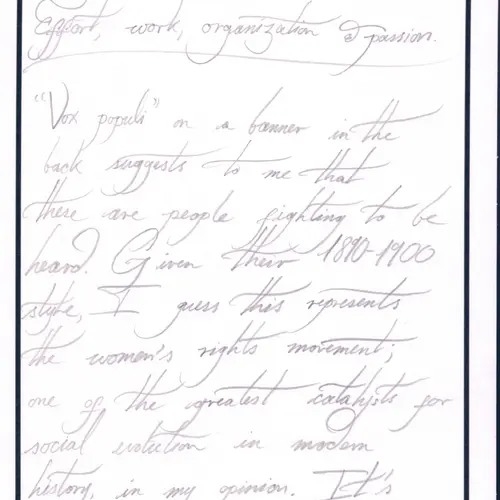 Effort, work, organization & passion.
"Vox populi" on a banner in the
back suggests to me that
these are people fighting to be
heard. Given their 1890-1900
style, I guess this represents
the women's rights movement;
one of the greatest catalysts for
social evolution in modern
history, in my opinion. It's